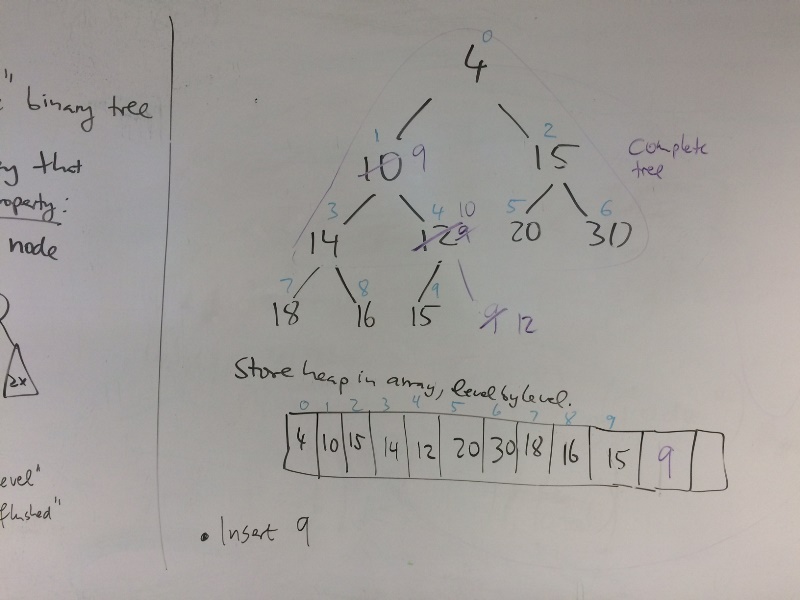 " binary tree
that
property:
node
2x
level"
flushed"
0
4
1 2
10 9 15
Complete
tree
3 4 10 5 6
14 12 9 20 30
7 8 9
18 16 15 9 12
Store heap in array, level by level.
0 1 2 3 4 5 6 7 8 9
4 10 15 14 12 20 30 18 16 15 9
• Insert 9